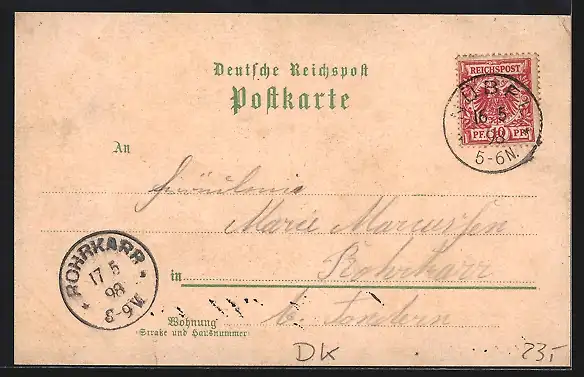 Deutsche Reichspost
Postkarte
REICHSPOST
PF. 10 PF.
16 5
98
5-6N.
An
Fräulein
Marie Marcussen
in Rohrkarr
b. Tondern
Wohnung
(Straße und Hausnummer)
* ROHRKARR *
17 5
98
8-9V.
DK
23,-